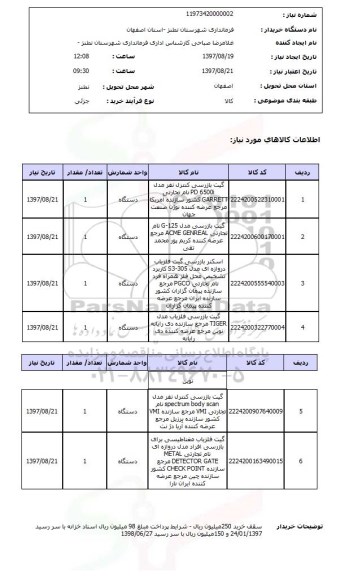 شماره نیاز : 11973420000002
نام دستگاه خریدار : فرمانداری شهرستان نطنز -استان اصفهان
نام ایجاد کننده غلامرضا صباحی کارشناس اداری فرمانداری شهرستان نطنز -
تاریخ ایجاد نیاز : 1397/08/19 ساعت : 12:08
تاریخ اعتبار نیاز : 1397/08/21 ساعت : 09:30
استان محل تحویل : اصفهان شهر محل تحویل : نطنز
طبقه بندی موضوعی : کالا نوع فرآیند خرید : جزئی
اطلاعات کالاهای مورد نیاز:
ردیف کد کالا نام کالا واحد شمارش تعداد/ مقدار تاریخ نیاز
1 2224200522310001 گیت بازرسی کنترل نفر مدل
PD 6500i نام تجارتی
GARRETT کشور سازنده آمریکا
مرجع عرضه کننده نوژن صنعت
جهان
دستگاه 1 1397/08/21
2 2224200600170001 گیت بازرسی مدل G-125 نام
تجارتی ACME GENREAL مرجع
عرضه کننده کریم پور محمد
تقی
دستگاه 1 1397/08/21
3 2224200555540003 اسکنر بازرسی گیت فلزیاب
دروازه ای مدل S3-305 کاربرد
تشخیص محل فلز همراه فرد
نام تجارتی PGCO مرجع
سازنده پیمان گزاران کشور
سازنده ایران مرجع عرضه
کننده پیمان گزاران
دستگاه 1 1397/08/21
4 2224200322770004 گیت بازرسی فلزیاب مدل
TIGER مرجع سازنده دی رایانه
نوین مرجع عرضه کننده دی
رایانه
دستگاه 1 1397/08/21
ParsNamadData
پایگاه اطلاع رسانی مناقصه و مزایده
۰۲۱-۸۸۳۴۹۶۷۰-۵
ردیف کد کالا نام کالا واحد شمارش تعداد/ مقدار تاریخ نیاز
نوین
5 2224200907640009 گیت بازرسی کنترل نفر مدل
spectrum body scan نام
تجارتی VMI مرجع سازنده VMI
کشور سازنده برزیل مرجع
عرضه کننده آریا دژ نت
دستگاه 1 1397/08/21
6 2224200163490015 گیت فلزیاب مغناطیسی برای
بازرسی افراد مدل دروازه ای
نام تجارتی METAL
DETECTOR GATE مرجع
سازنده CHECK POINT کشور
سازنده چین مرجع عرضه
کننده ایران بارا
دستگاه 1 1397/08/21
توضیحات خریدار سقف خرید 250میلیون ریال - شرایط پرداخت مبلغ 98 میلیون ریال اسناد خزانه با سر رسید
24/01/1397 و 150میلیون ریال با سر رسید 1398/06/27